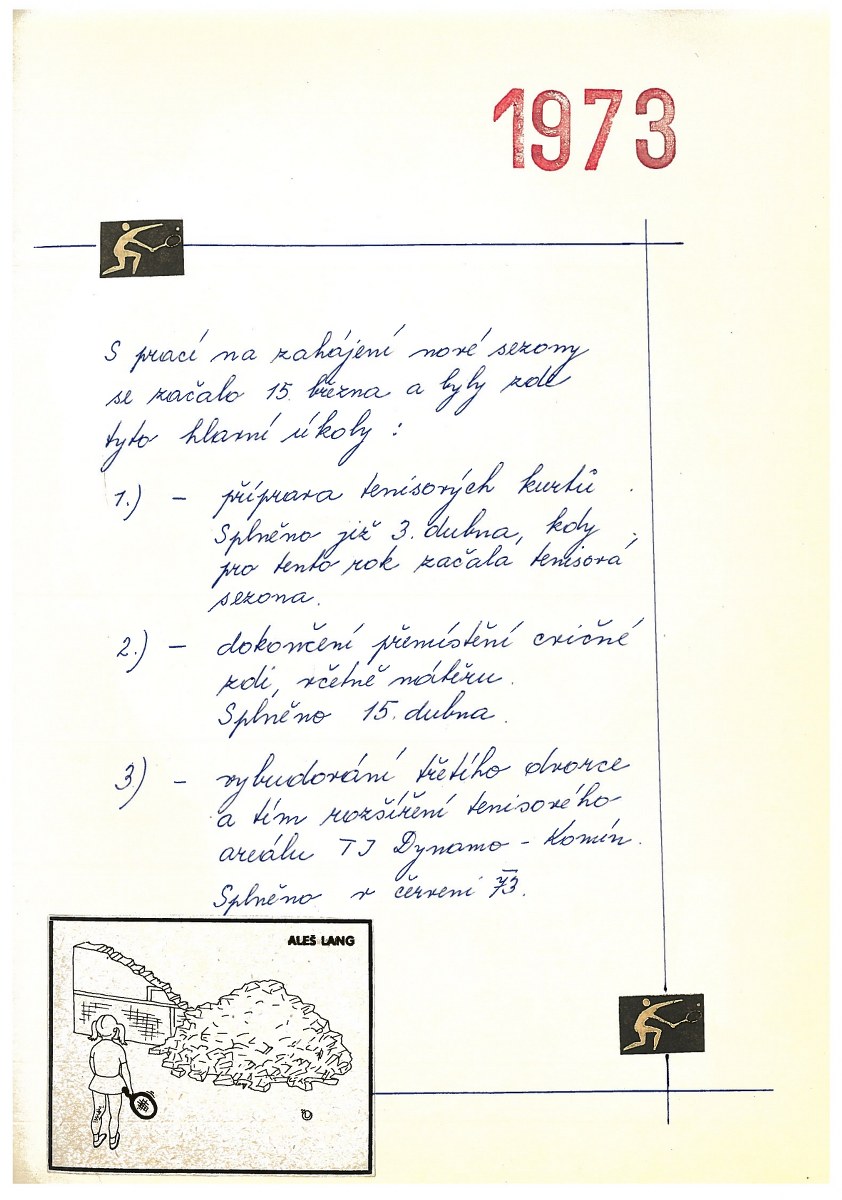 1973
S prací na zahájení nové sezony
se začalo 15. března a byly zde
tyto hlavní úkoly :
1.) - příprava tenisových kurtů .
Splněno již 3. dubna, kdy
pro tento rok začala tenisová
sezona.
2.) - dokončení přemístění cvičné
zdi, včetně nátěru.
Splněno 15. dubna.
3.) - vybudování třetího dvorce
a tím rozšíření tenisového
areálu TJ Dynamo - Komín.
Splněno v červenci 73.
ALEŠ LANG